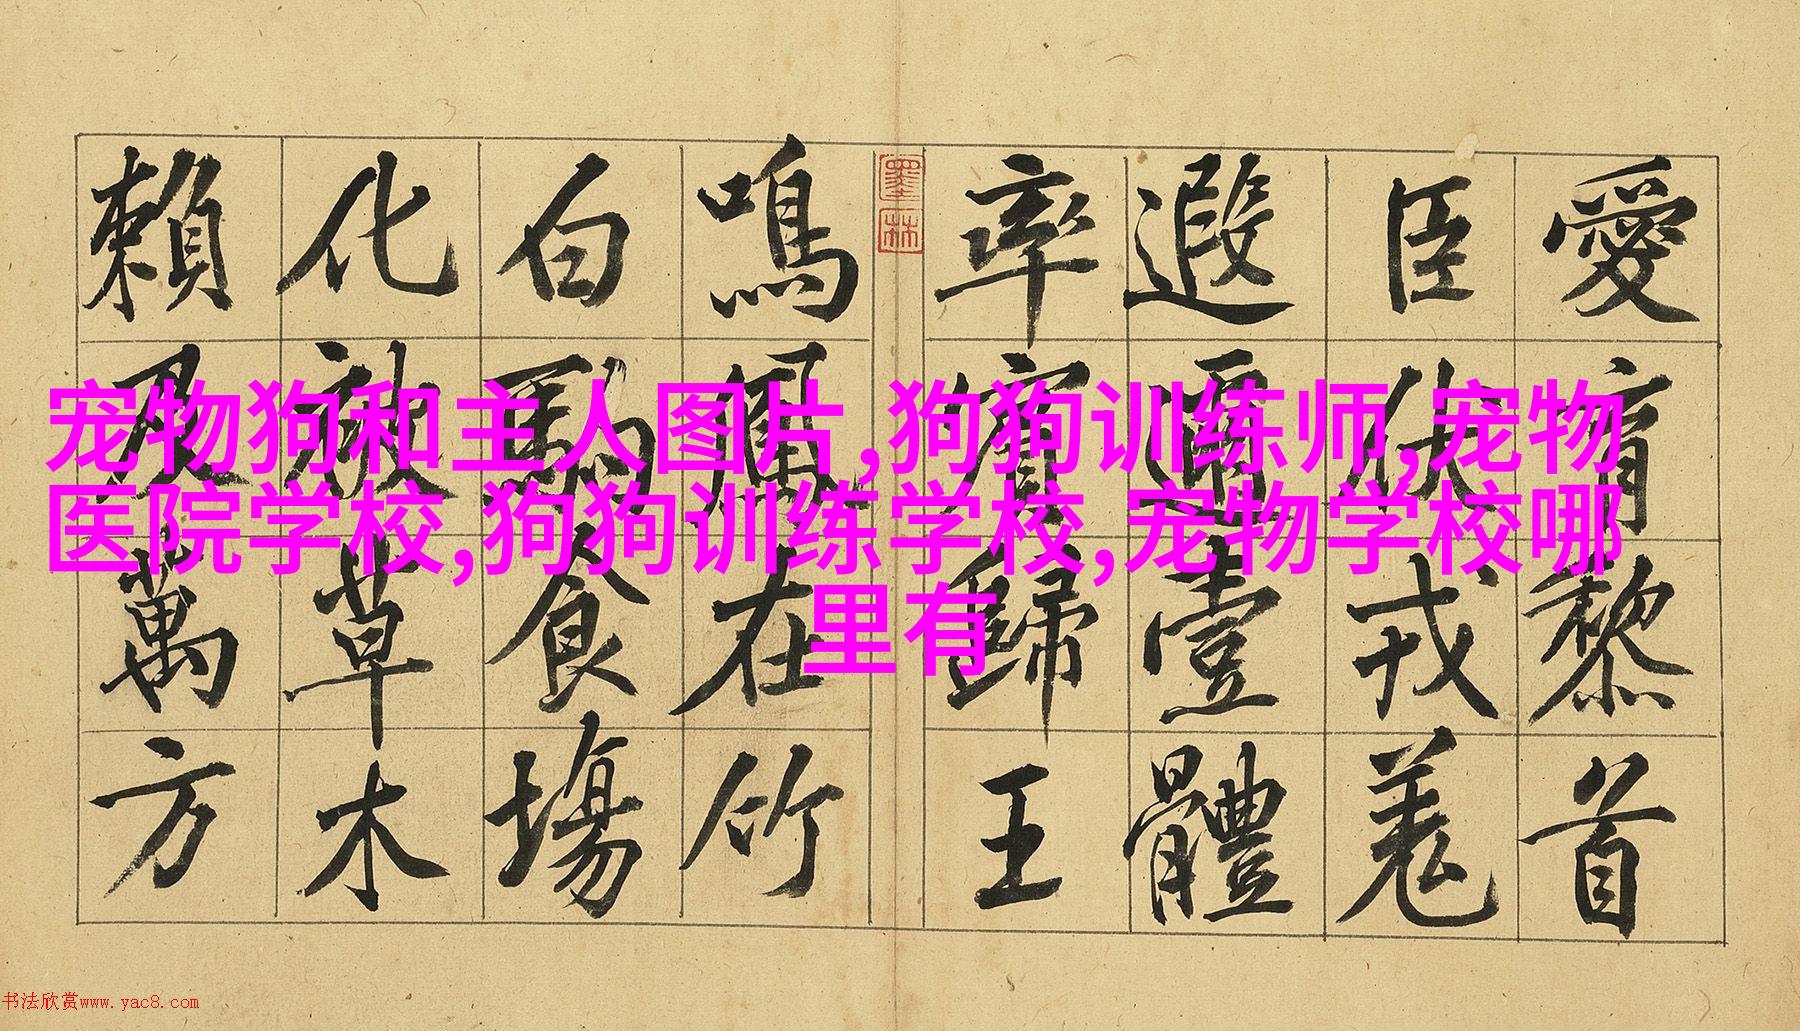 宠物狗和主人图片,狗狗训练师,宠物
医院学校,狗狗训练学校,宠物学校哪
里有
愛育黎首
臣伏戎羌
遐邇壹體
率賓歸王
鳴鳳在竹
白駒食場
化被草木
賴及萬方
墨林
书法欣赏www.yac8.com